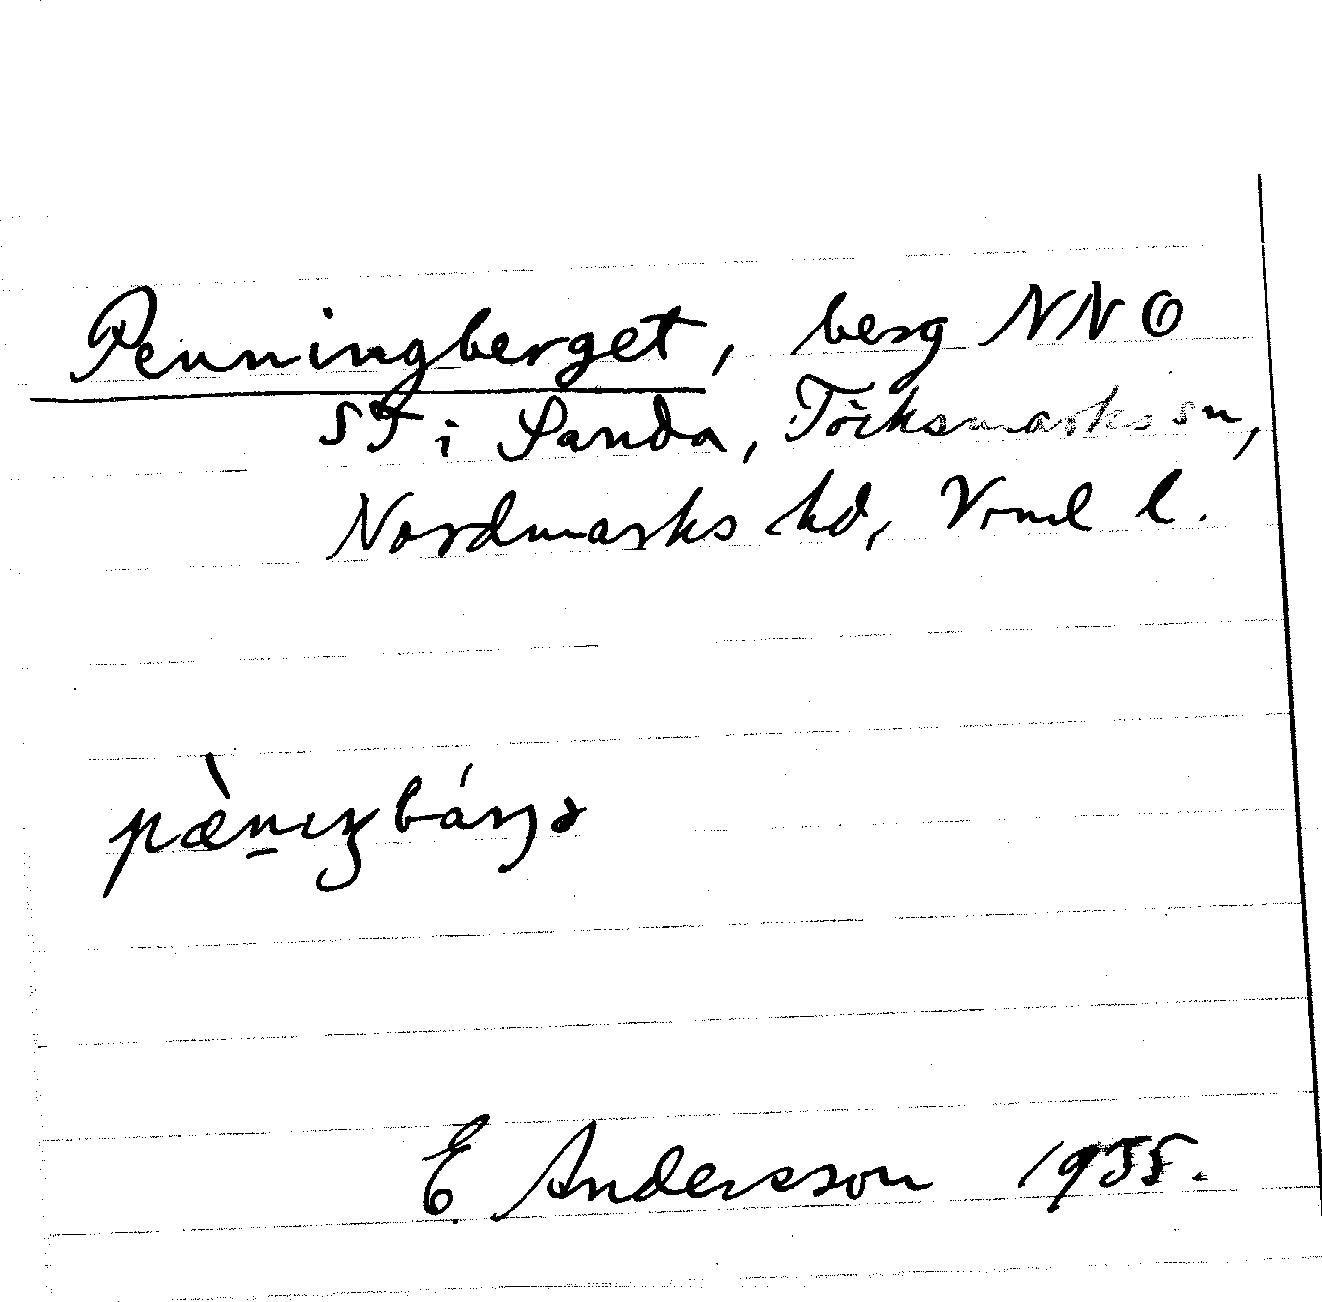 Penningberget, berg NNO
ST i Sanda, Töcksmarks sn,
Nordmarks hd, Vrml l.
pæ̀n̠ıŋbárjə
E Andersson 1935.